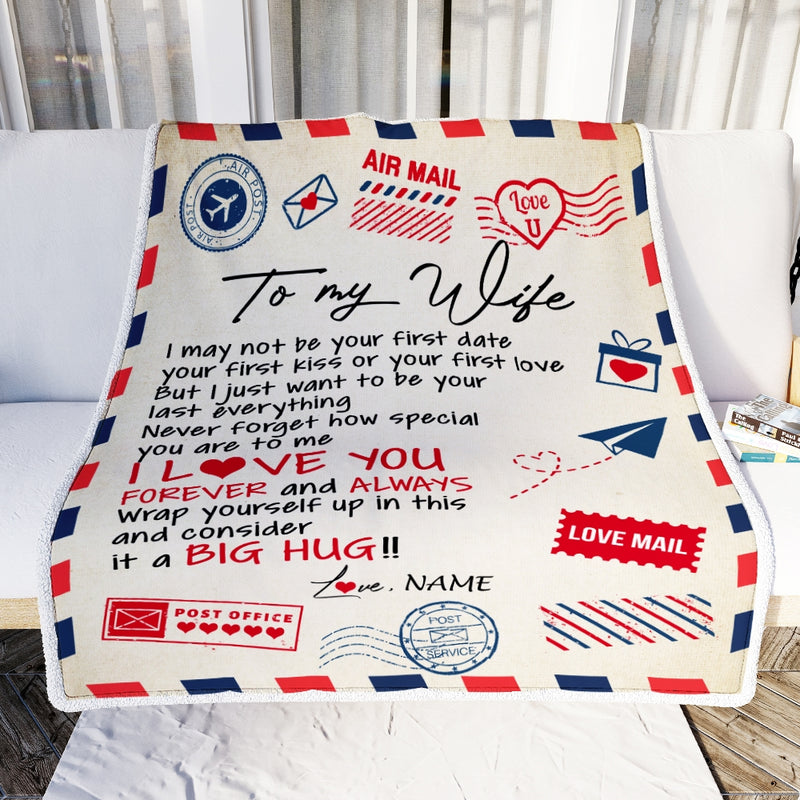 AIR POST
AIR POST
AIR MAIL
Love
U
To my Wife
I may not be your first date
your first kiss or your first love
But I just want to be your
last everything
Never forget how special
you are to me
I LOVE YOU
FOREVER and ALWAYS
Wrap yourself up in this
and consider
it a BIG HUG!!
Love, NAME
LOVE MAIL
POST OFFICE
POST
SERVICE
The